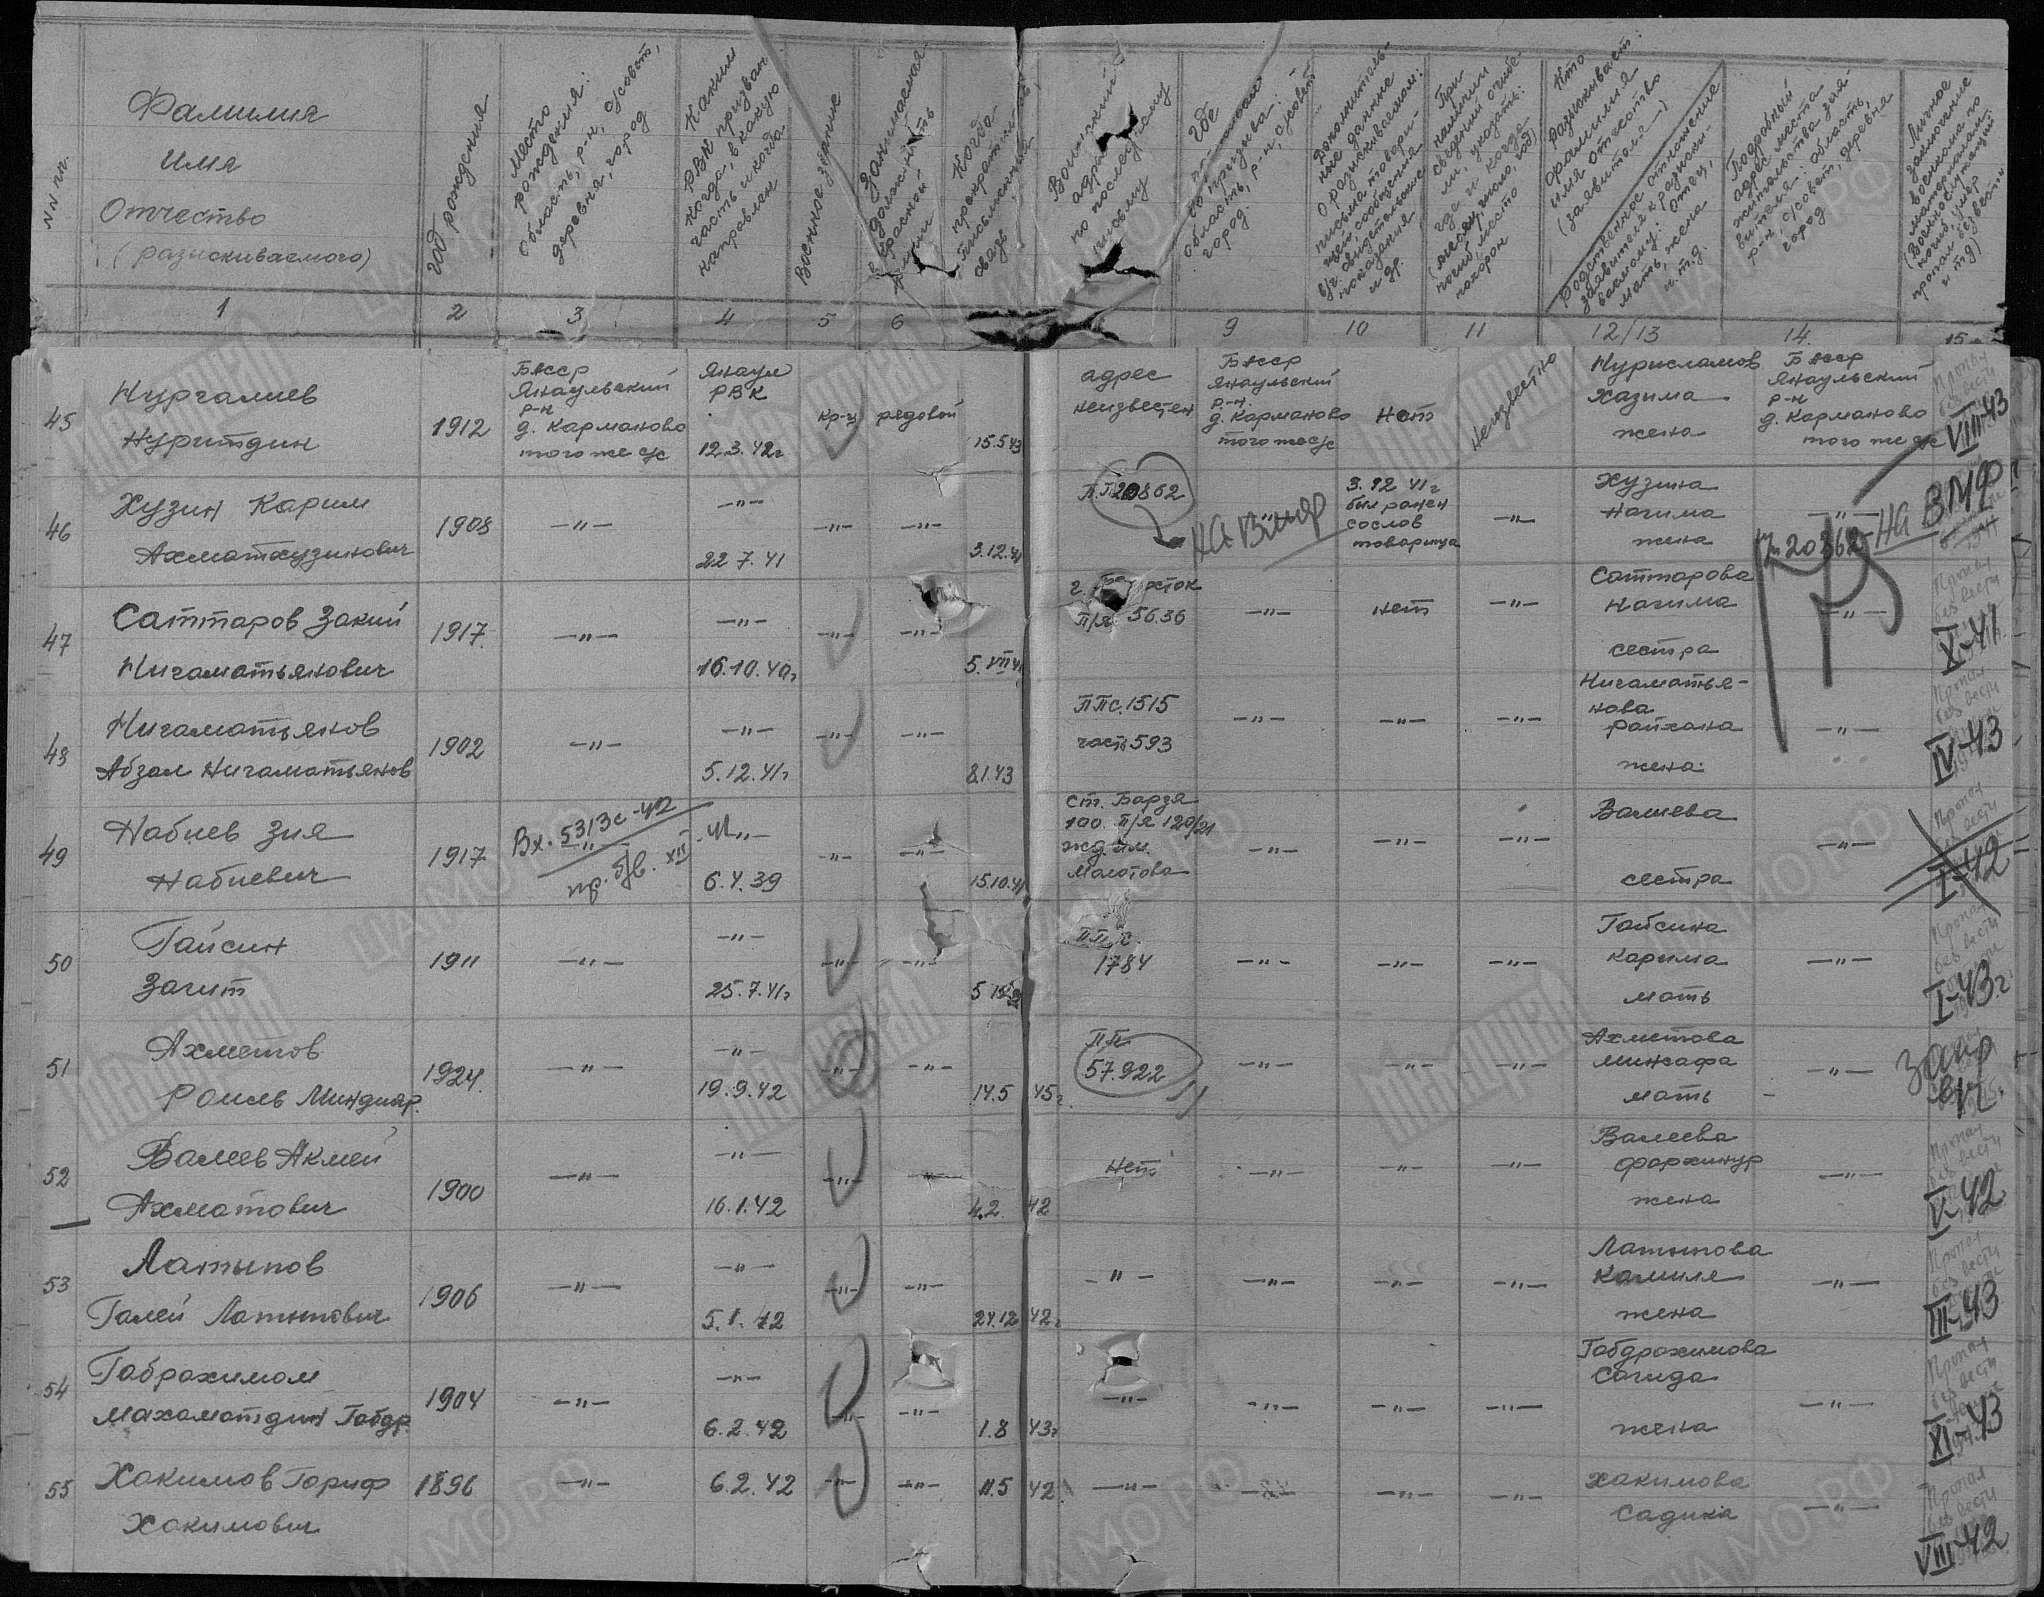 N N п/п.
Фамилия
Имя
Отчество
(разыскиваемого)
год рождения
Место рождения:
область, р-н, с/совет,
деревня, город
Каким
РВК призван
когда, в какую
часть и когда
направлен
Военное звание
Занимаемая
должность
Когда
прекратилась
письменная
связь
Военный
адрес
по последнему
письму
Где
до призыва:
область, р-н, с/совет
город.
Дополнитель-
ные данные
о разыскиваемом:
При
наличии
Кто
разыскивает:
фамилия
имя отчество
(заявителя)
Родственное отношение
мать, жена
и т.д.
Подробный
адрес места
жительства зая-
вителя: область,
р-н, с/совет, деревня
город
Личное
заключение
1 2 3 4 5 6 9 10 11 12/13 14. 15
45
Нургалиев
Нуритдин
1912
БАССР
Янаульский
р-н
д. Карманово
того же с/с
Янаул
РВК
12.3.42г
кр-ц
рядовой
15.5.43
адрес
неизвестен
БАССР
Янаульский
р-н.
д. Карманово
того же с/с
Нет
Неизвестно
Нурисламов
Хазима
жена
БАССР
Янаульский
р-н
д. Карманово
того же с/с
VIII-43
46
Хузин Карим
Ахматхузинович
1908
—"—
—"—
22 7.41
—"—
—"—
3.12.41
П.П 20862
На ВМФ
3.12 41г
был ранен
со слов
товарища
—"—
Хузина
Нагима
жена
—"—
20862 - На ВМФ
47
Саттаров Закий
Нигаматьянович
1917
—"—
—"—
16.10.40г
—"—
—"—
5.VII 41
п/я 56.36
—"—
нет
—"—
Саттарова
Нагима
сестра
—"—
Пропал
без вести
X-41
48
Нигаматьянов
Абзал Нигаматьянов
1902
—"—
—"—
5.12.41г
—"—
—"—
8.1.43
ППс.1515
часть 593
—"—
—"—
—"—
Нигаматья-
нова
Райхана
жена
—"—
Пропал
без вести
IV-43
49
Набиев Зия
Набиевич
1917
Вх. 5313с-42
пр. б/в. XII
41
—"—
6.4.39
—"—
—"—
15.10.41
ст. Барзя
100. п/я 120/21
жд им.
Молотова
—"—
—"—
—"—
Валиева
сестра
—"—
Пропал
без вести
I-42
50
Гайсин
Загит
1911
—"—
—"—
25.7.41г
—"—
—"—
ПП с.
1784
—"—
—"—
—"—
Гайсина
Карима
мать
—"—
Пропал
без вести
I-43г
51
Ахметов
Роиль Миндияр.
1924.
—"—
—"—
19.9.42
—"—
—"—
14.5 45г.
ПП.
57.922
—"—
—"—
—"—
Ахметова
Минсафа
мать
—"—
запр
52
Валеев Акмей
Ахматович
1900
—"—
—"—
16.1.42
—"—
—"—
4.2. 42
Нет
—"—
—"—
—"—
Валеева
Фархинур
жена
—"—
Пропал
без вести
V-42
53
Латыпов
Галей Латыпович
1906
—"—
—"—
5.1.42
—"—
—"—
24.12 42г
—"—
—"—
—"—
—"—
Латыпова
Камиля
жена
—"—
Пропал
без вести
III-43
54
Габрахимом
Махаматдин Габдр.
1904
—"—
—"—
6.2.42
—"—
—"—
1.8 43г
—"—
—"—
—"—
—"—
Габдрахимова
Сагида
жена
—"—
Пропал
без вести
XI-43
55
Хакимов Гариф
Хакимович
1896
—"—
6.2.42
—"—
—"—
11.5 42
—"—
—"—
—"—
—"—
Хакимова
Садика
—"—
Пропал
без вести
VIII-42
МЕМОРИАЛ
ЦА МО РФ